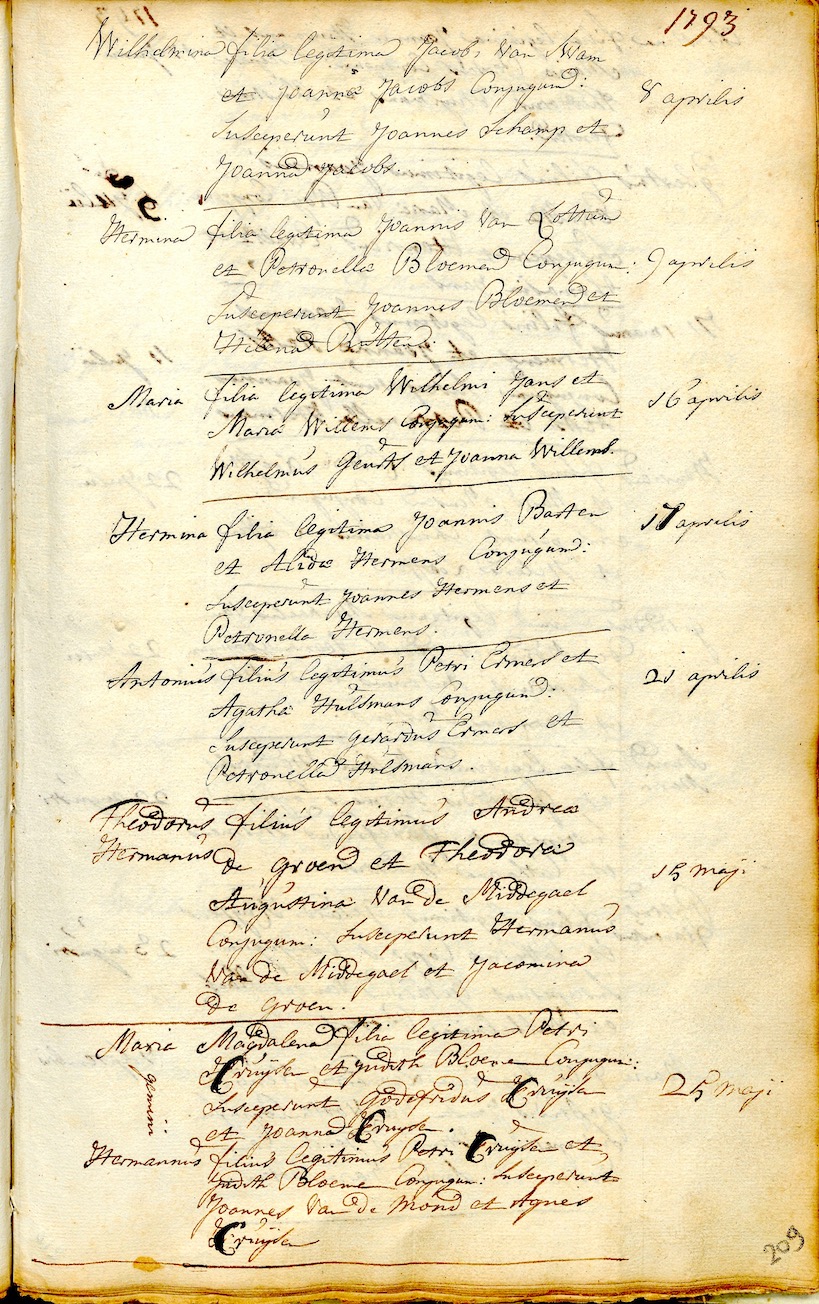 1793
Wilhelmina filia legitima Jacobi Van Swam
et Joannæ Jacobs Conjugum: 8 aprilis
Susceperunt Joannes Schamp et
Joanna Jacobs.
Hermina filia legitima Joannis Van Lottum
et Petronellæ Bloemen Conjugum: 9 aprilis
Susceperunt Joannes Bloemen et
Helena Rutten.
Maria filia legitima Wilhelmi Jans et 16 aprilis
Maria Willems Conjugum: Susceperunt
Wilhelmus Geurts et Joanna Willems.
Hermina filia legitima Joannis Barten 17 aprilis
et Alidæ Hermens Conjugum:
Susceperunt Joannes Hermens et
Petronella Hermens.
Antonius filius legitimus Petri Ermers et 21 aprilis
Agatha Hulsmans Conjugum:
Susceperunt Gerardus Ermers et
Petronella Hulsmans.
Theodorus filius legitimus Andreæ
Hermanus de Groen et Theodoræ
Augustina Van de Middegael 15 maji
Conjugum: Susceperunt Hermanus
Van de Middegael et Jacomina
de Groen.
Maria Magdalena filia legitima Petri
Cruijse et Judith Bloeme Conjugum:
gemini
Susceperunt Godefridus Cruijse 25 maji
et Joanna Cruyse.
Hermannus filius legitimus Petri Cruijse et
Judith Bloeme Conjugum: Susceperunt
Joannes Van de Mond et Agnes
Cruijse
209